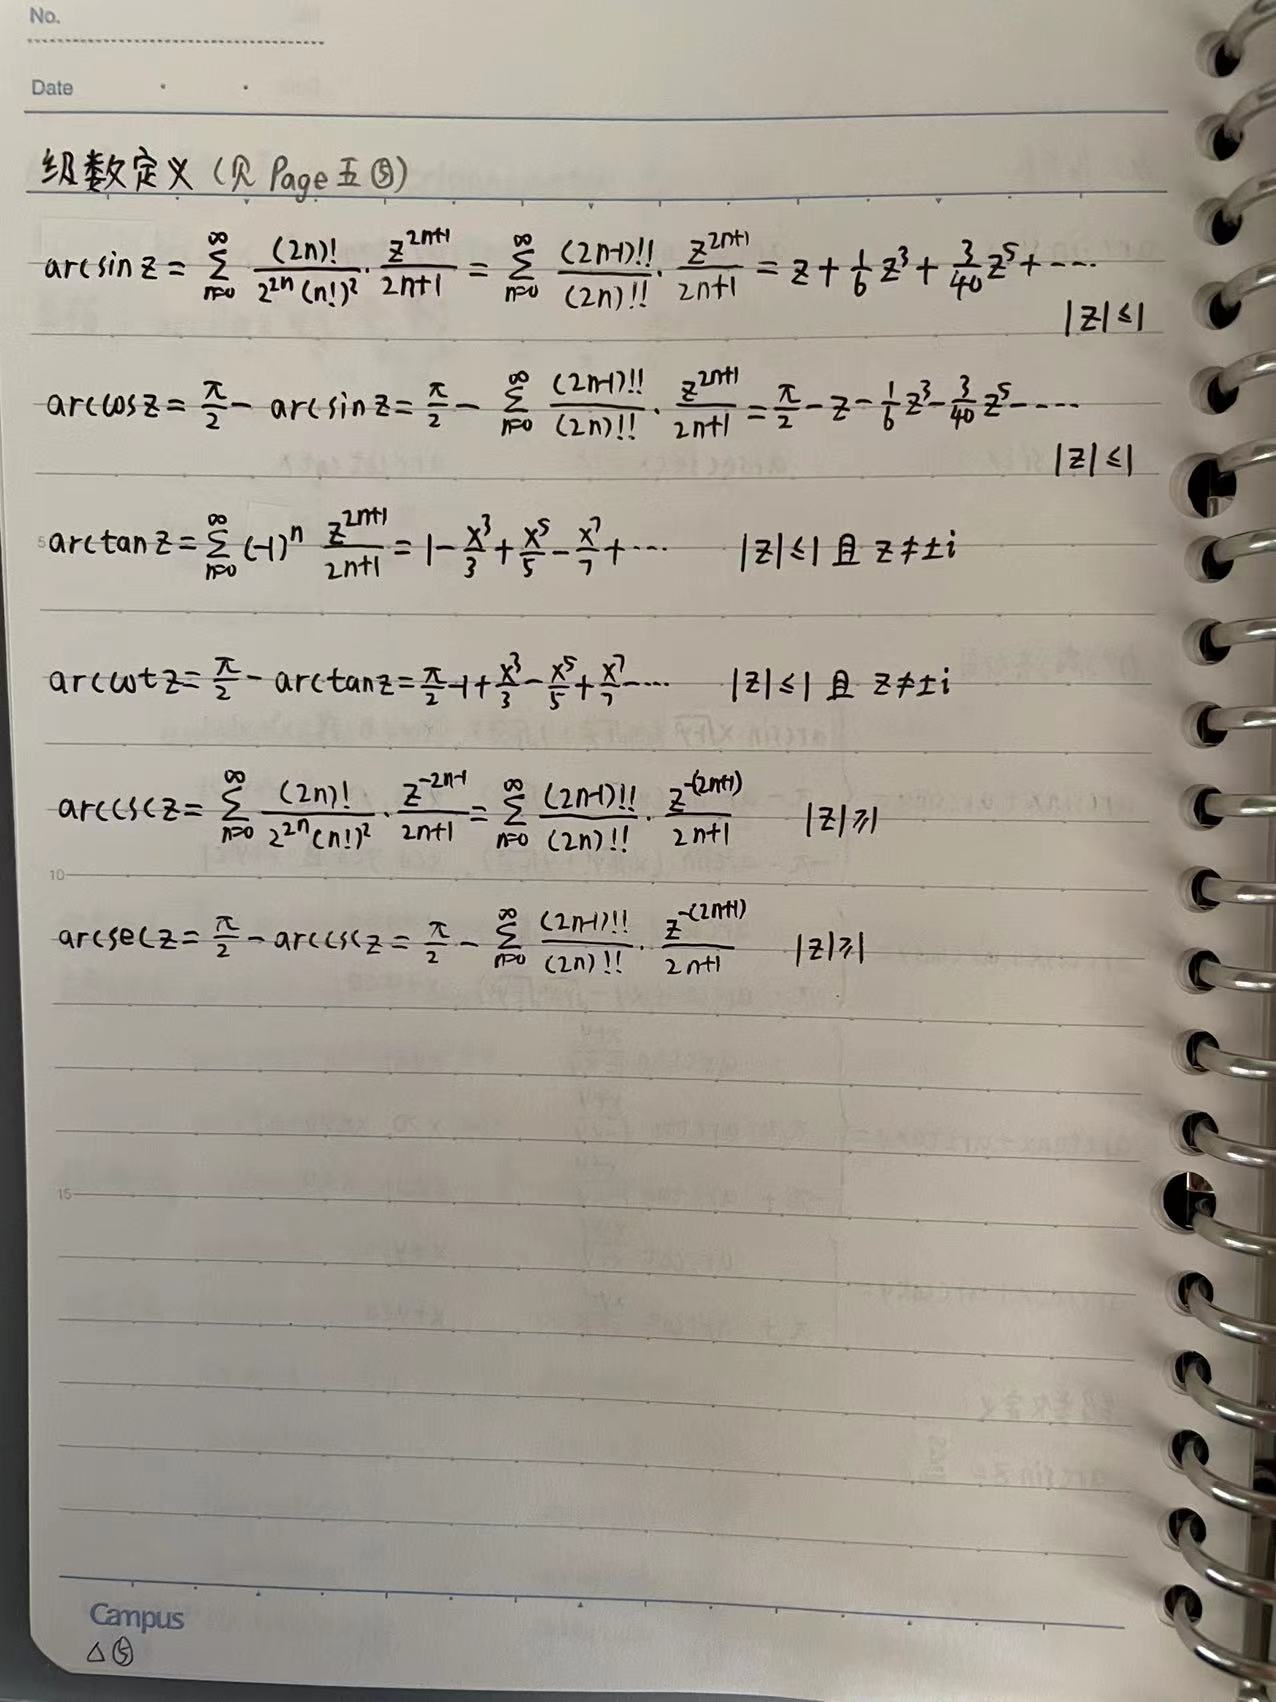 No.
Date
级数定义（见 Page 五⑤）
arcsin z = ∑_{n=0}^{∞} (2n)!/(2^{2n}(n!)²) · z^{2n+1}/(2n+1) = ∑_{n=0}^{∞} (2n-1)!!/(2n)!! · z^{2n+1}/(2n+1) = z + 1/6 z³ + 3/40 z⁵ + ····
|z|≤1
arccos z = π/2 - arcsin z = π/2 - ∑_{n=0}^{∞} (2n-1)!!/(2n)!! · z^{2n+1}/(2n+1) = π/2 - z - 1/6 z³ - 3/40 z⁵ - ····
|z|≤1
5 arctan z = ∑_{n=0}^{∞} (-1)^n z^{2n+1}/(2n+1) = 1 - x³/3 + x⁵/5 - x⁷/7 + ··· |z|≤1 且 z≠±i
arccot z = π/2 - arctan z = π/2 - 1 + x³/3 - x⁵/5 + x⁷/7 - ···· |z|≤1 且 z≠±i
arccsc z = ∑_{n=0}^{∞} (2n)!/(2^{2n}(n!)²) · z^{-2n-1}/(2n+1) = ∑_{n=0}^{∞} (2n-1)!!/(2n)!! · z^{-(2n+1)}/(2n+1) |z|≥1
10
arcsec z = π/2 - arccsc z = π/2 - ∑_{n=0}^{∞} (2n-1)!!/(2n)!! · z^{-(2n+1)}/(2n+1) |z|≥1
15
Campus
△⑤